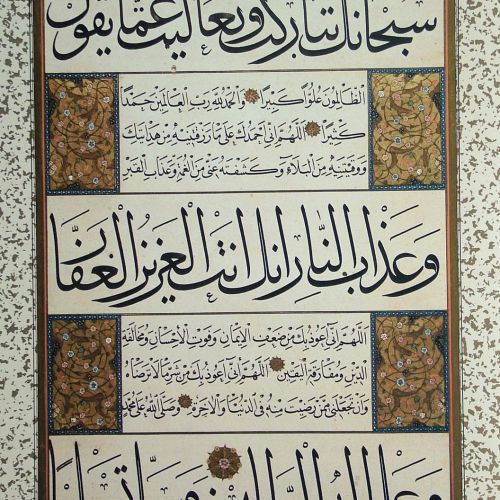 سبحانك تباركت وتعاليت عما يقول
الظالمون علوا كبيرا والحمد لله رب العالمين حمدا
كثيرا اللهم اني احمدك على ما رزقتنيه من هدايتك
ووقيتنيه من البلاء وكشفته عني من الغم وعذاب القبر
وعذاب النار انك انت العزيز الغفار
اللهم اني اعوذ بك من ضعف الايمان وفوت الاحسان ومخالفة
الدين ومفارقة اليقين اللهم اني اعوذ بك من شر ما لا ترضاه
وان تجعلني ممن رضيت منه في الدنيا والاخرة وصلى الله على محمد